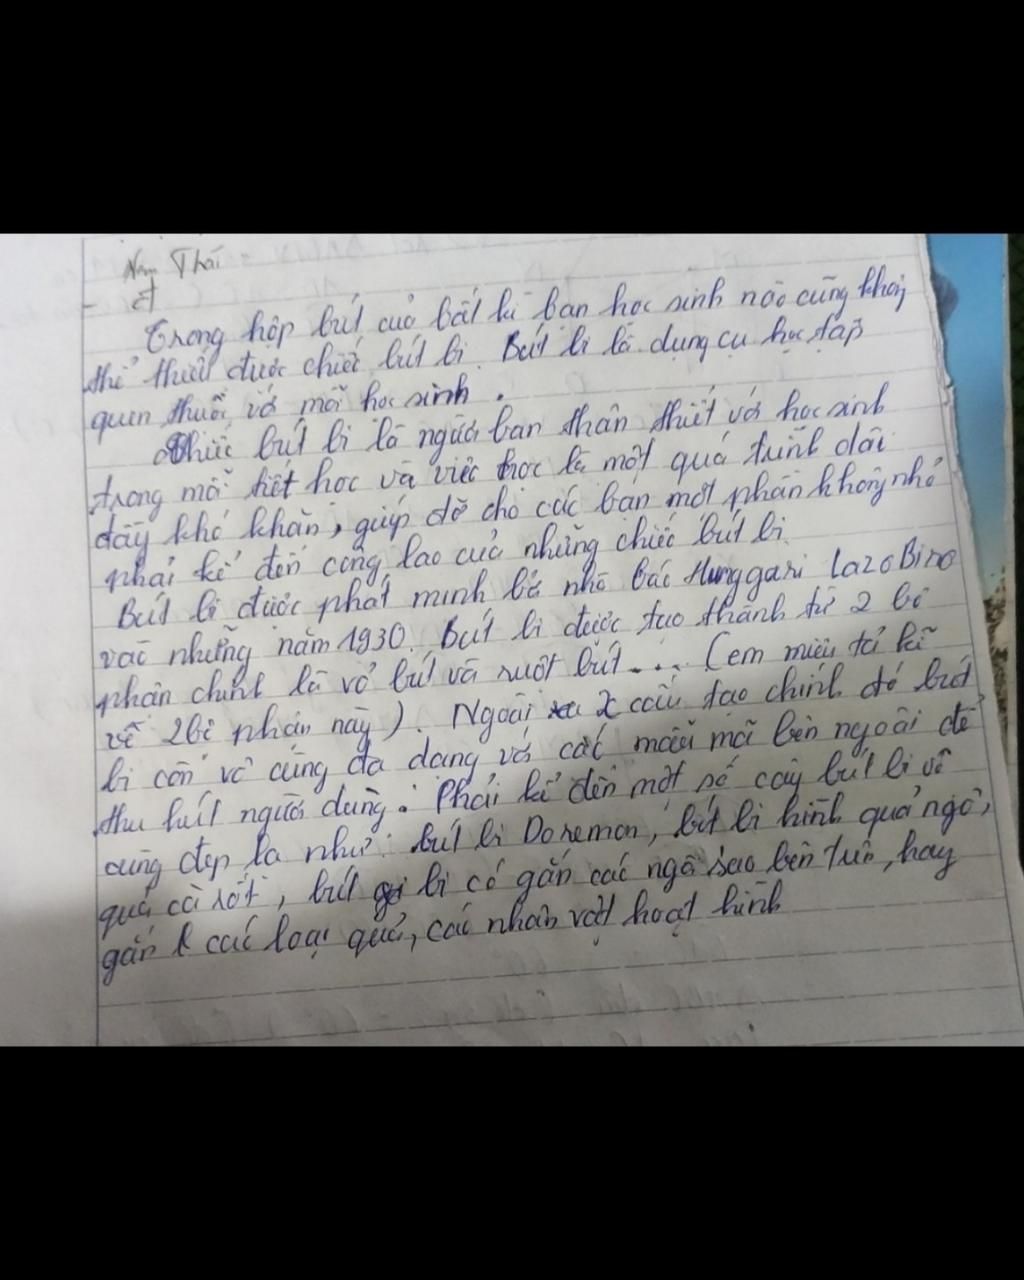 Nam Thái
Trong hộp bút của bất kì bạn học sinh nào cũng không
thể thiếu được chiếc bút bi. Bút bi là dụng cụ học tập
quen thuộc với mỗi học sinh.
Chiếc bút bi là người bạn thân thiết với học sinh
trong mỗi tiết học và việc học là một quá trình dài
đầy khó khăn, giúp đỡ cho các bạn một phần không nhỏ
phải kể đến công lao của những chiếc bút bi.
Bút bi được phát minh bởi nhà báo Hunggari Lazo Biro
vào những năm 1930. Bút bi được tạo thành từ 2 bộ
phận chính là vỏ bút và ruột bút... (em miêu tả kĩ
về 2 bộ phận này). Ngoài 2 cấu tạo chính đó bút
bi còn vô cùng đa dạng với các mẫu mã bên ngoài để
thu hút người dùng. Phải kể đến một số cây bút bi vô
cùng đẹp là như: bút bi Doremon, bút bi hình quả ngô,
quả cà rốt, bút bi có gắn các ngôi sao bên trên, hay
gắn các loại quả, các nhân vật hoạt hình